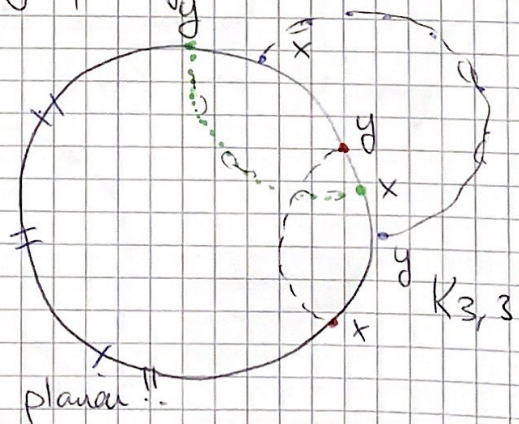 y
x
y
x
y
K3,3
x
planar!!